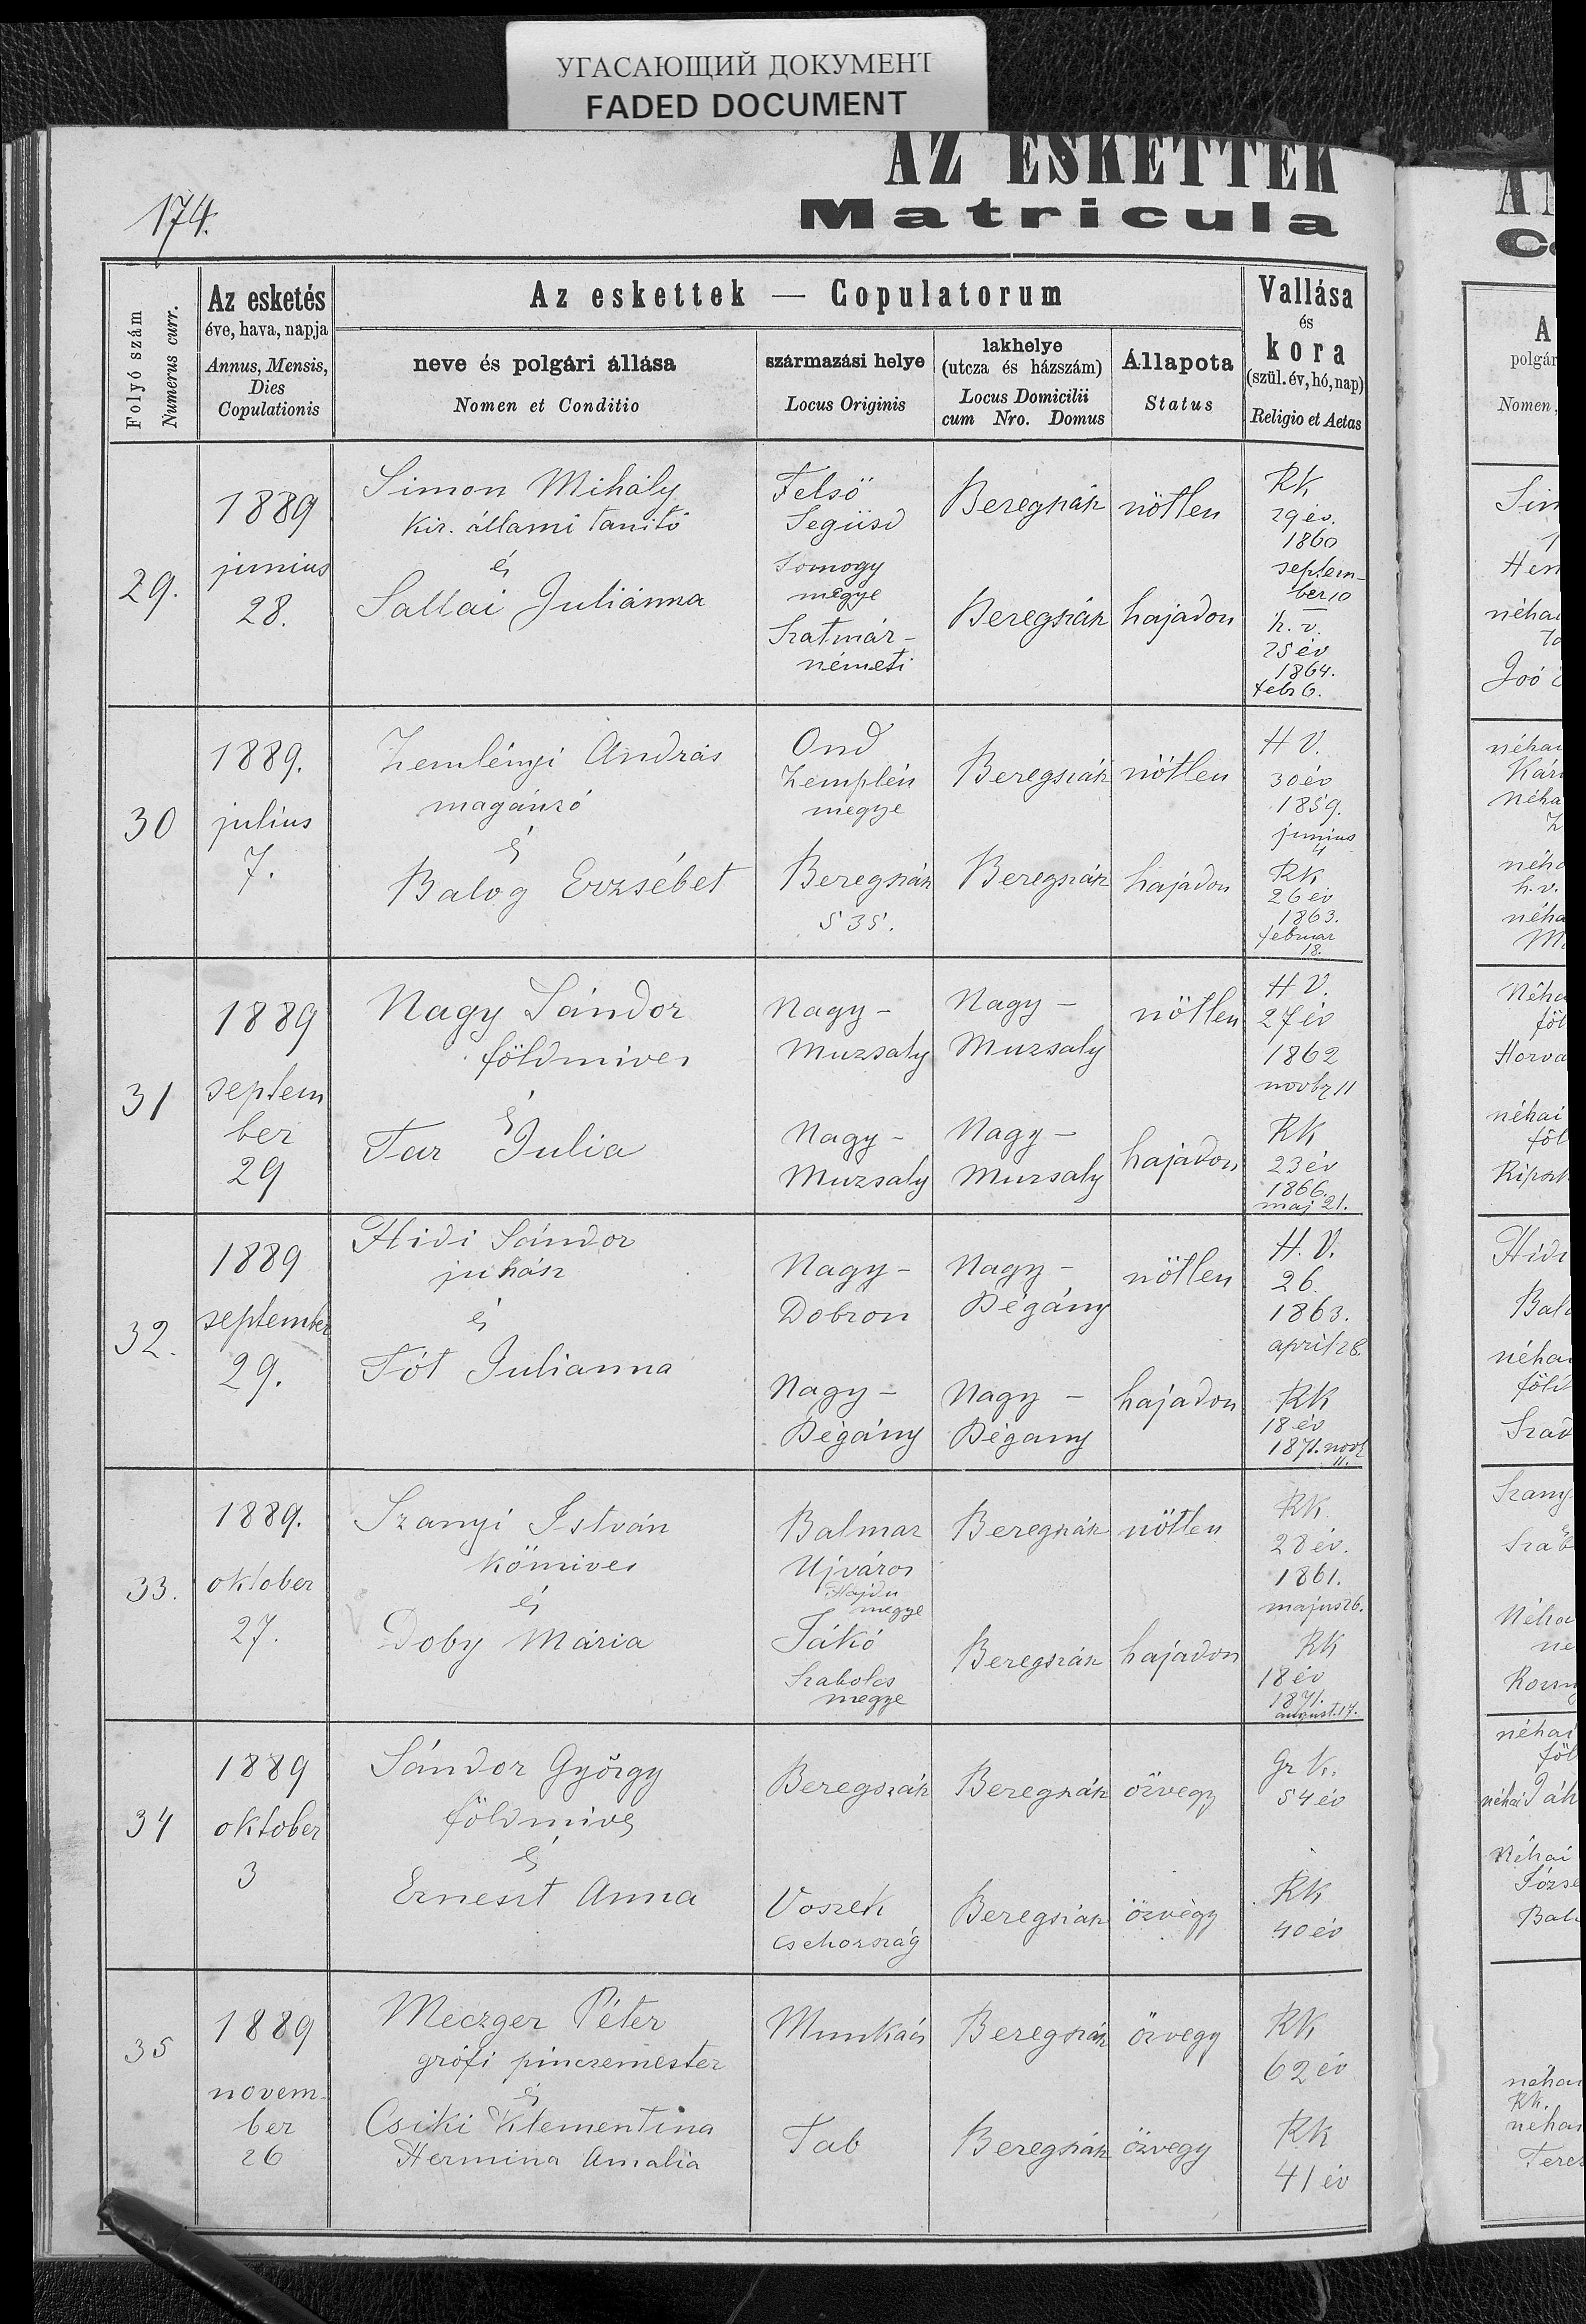 УГАСАЮЩИЙ ДОКУМЕНТ
FADED DOCUMENT
AZ ESKETTEK
Matricula
174.
Folyó szám
Numerus curr.
Az esketés
éve, hava, napja
Annus, Mensis,
Dies
Copulationis
Az eskettek — Copulatorum
neve és polgári állása
Nomen et Conditio
származási helye
Locus Originis
lakhelye
(utcza és házszám)
Locus Domicilii
cum Nro. Domus
Állapota
Status
Vallása
és
kora
(szül. év, hó, nap)
Religio et Aetas
29.
1889
junius
28.
Simon Mihály
kir. állami tanitó
és
Sallai Juliánna
Felső
Següsd
Somogy
megye
Szatmár-
németi
Beregszász
Beregszász
nőtlen
hajadon
RK
29 év.
1860
septem-
ber 10
h. v.
25 év
1864.
febr 6.
30
1889.
julius
7.
Zemlényi András
magánzó
és
Balog Erzsébet
Ond
Zemplén
megye
Beregszász
535.
Beregszász
Beregszász
nőtlen
hajadon
H V.
30 év
1859.
junius
4
RK
26 év
1863.
februar
18.
31
1889
septem
ber
29
Nagy Sándor
földmives
és
Tar Julia
Nagy-
Muzsaly
Nagy-
Muzsaly
Nagy-
Muzsaly
Nagy-
Muzsaly
nőtlen
hajadon
H V.
27 év
1862
novbr 11
RK
23 év
1866.
maj 21.
32.
1889
september
29.
Hidi Sándor
juhász
és
Tót Julianna
Nagy-
Dobron
Nagy-
Bégány
Nagy-
Bégány
Nagy-
Bégany
nőtlen
hajadon
H. V.
26.
1863.
april 28.
RK
18 év
1871. novb
11.
33.
1889.
oktober
27.
Szanyi István
kömives
és
Doby Mária
Balmaz
Ujváros
Hajdu
megye
Jákó
Szabolcs
megye
Beregszász
Beregszász
nőtlen
hajadon
RK
28 év.
1861.
majus 26.
RK
18 év
1871.
august. 17.
34
1889
oktober
3
Sándor György
földmives
és
Erneszt Anna
Beregszász
Voszek
Csehország
Beregszász
Beregszász
özvegy
özvegy
Gr K.
54 év
RK
40 év
35
1889
novem-
ber
26
Meczger Péter
grófi pinczemester
és
Csiki Klementina
Hermina Amalia
Munkács
Tab
Beregszász
Beregszász
özvegy
özvegy
RK
62 év
RK
41 év